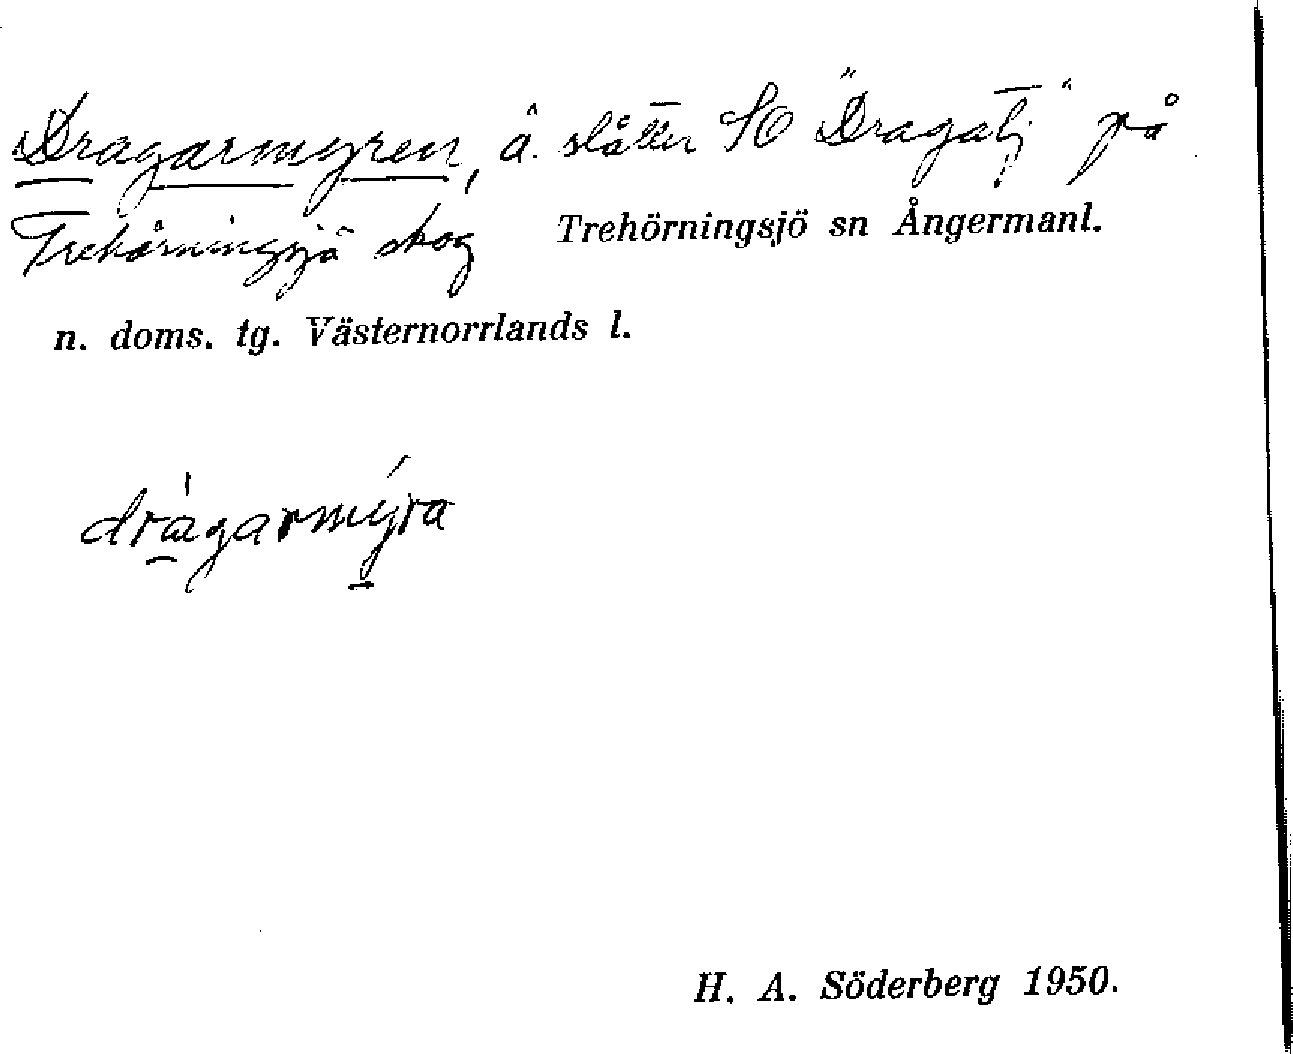 Dragarmyren, ä. slåtter SO "Dragatj" på
Trehörningsjö skog Trehörningsjö sn Ångermanl.
n. doms. tg. Västernorrlands l.
drágarmýra
H. A. Söderberg 1950.